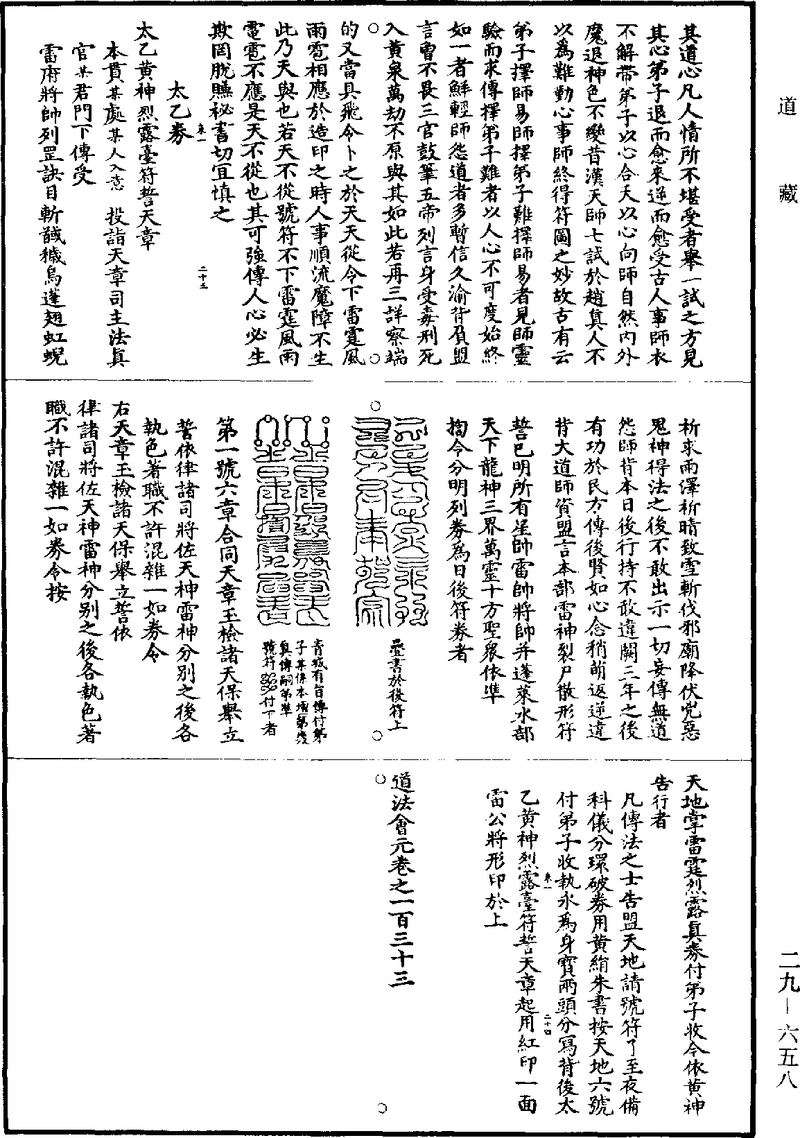 道藏
其道心凡人情所不堪受者舉一試之方見
其心弟子退而愈來逆而愈受古人事師衣
不解帶弟子以心合天以心向師自然內外
魔退神色不變昔漢天師七試於趙真人不
以為難勤心事師終得符圖之妙故古有云
弟子擇師易師擇弟子難擇師易者見師靈
驗而求傳擇弟子難者以人心不可度始終
如一者鮮輕師怨道者多暫信久渝背負盟
言曾不畏三官鼓筆五帝列言身受毒刑死
入黃泉萬劫不原與其如此若再三詳察端
的又當具飛令卜之於天天從令下雷霆風
雨雹相應於造印之時人事順流魔障不生
此乃天與也若天不從號符不下雷霆風雨
電雹不應是天不從也其可強傳人心必生
欺罔脫賺祕書切宜慎之
太乙券
卷一
二十三
太乙黃神烈露臺符誓天章
本貫某處某人入意 投詣天章司主法真
官某君門下傳受
雷府將帥列罡訣目斬馘穢烏蓬翅虹蜺
祈求雨澤祈晴致雪斬伐邪廟降伏兇惡
鬼神得法之後不敢出示一切妄傳無道
怨師背本日後行持不敢違闕三年之後
有功於民方傳後賢如心念稍萌返逆違
背大道師資盟言本部雷神裂尸散形符
誓已明所有星帥雷帥將帥并蓬萊水部
天下龍神三界萬靈十方聖眾依準
搊令分明列券為日後符券者
疊書於後符上
青城有旨傳付弟
子某係本壇第幾
真傳嗣弟準
號符付下者
第一號六章合同天章玉檢諸天保舉立
誓依律諸司將佐天神雷神分別之後各
執色著職不許混雜一如券令
右天章玉檢諸天保舉立誓依
律諸司將佐天神雷神分別之後各執色著
職不許混雜一如券令按
天地掌雷霆烈露真券付弟子收令依黃神
告行者
凡傳法之士告盟天地請號符了至夜備
科儀分環破券用黃絹朱書按天地六號
付弟子收執永為身寶兩頭分寫背後太
卷一
二十四
乙黃神烈露臺符誓天章起用紅印一面
雷公將形印於上
道法會元卷之一百三十三
二九—六五八